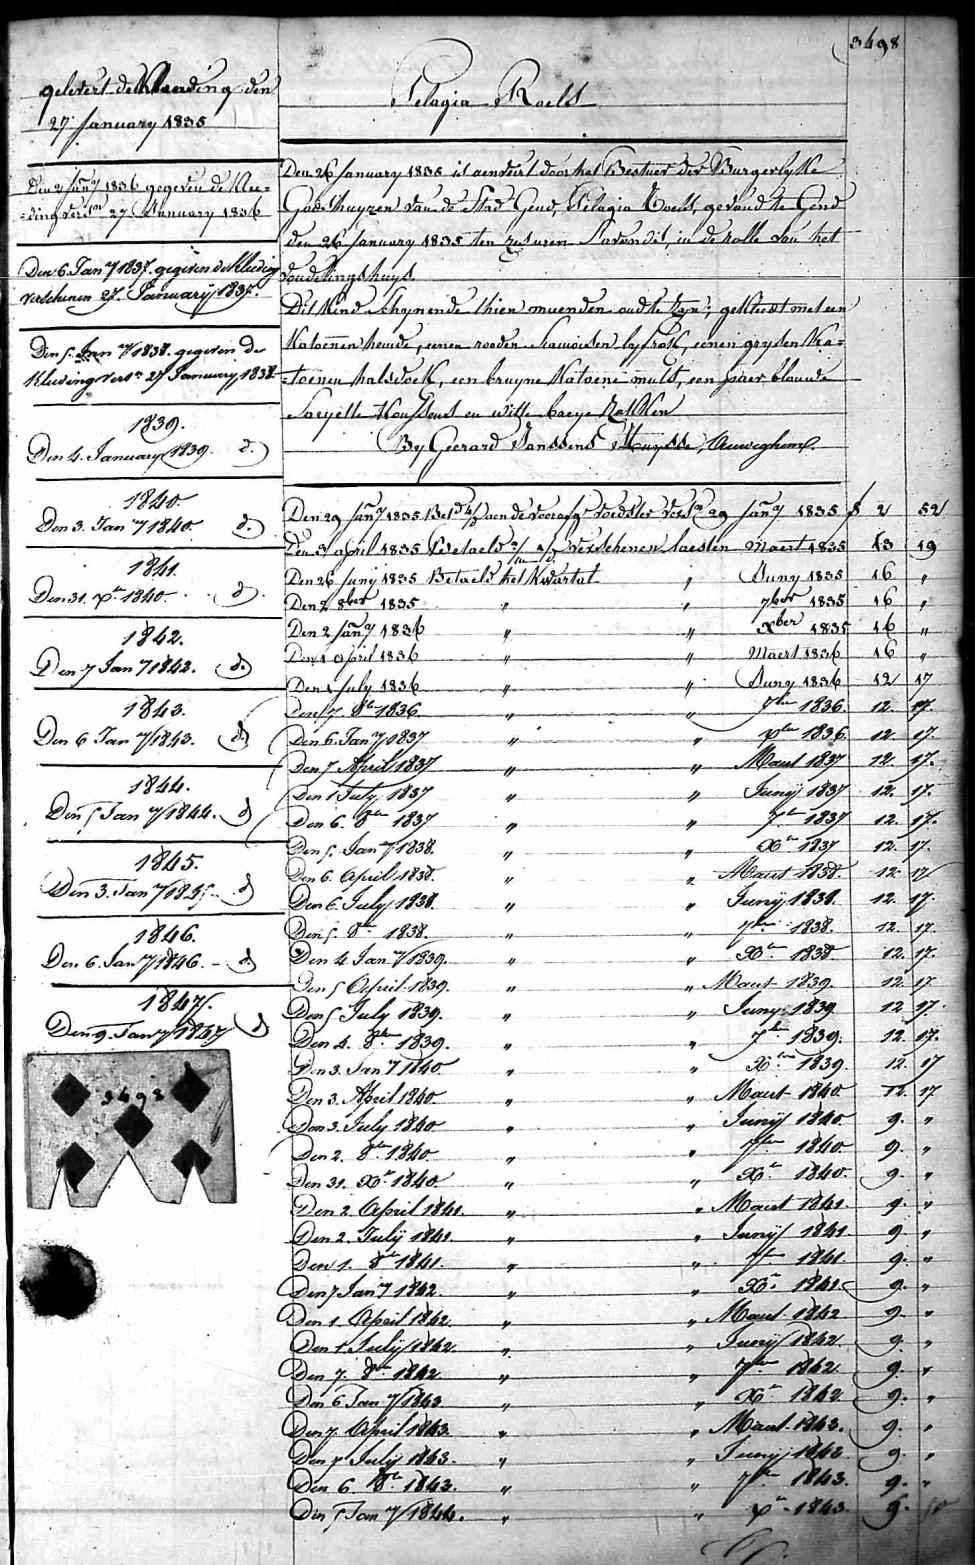 3498
gelevert de Kleeding den
27 January 1835
Den 2 Jan.y 1836 gegeven de Klee-
-ding vers.n 27 January 1836
Den 6 Jan.y 1837. gegeven de kleeding
verschenen 27. Januarij 1837.
Den 5. Jan.y 1838. gegeven de
kleeding vers.n 27 January 1838
1839.
Den 4. January 1839. d.
1840
Den 3. Jan.y 1840. d.
1841.
Den 31. x.r 1840. d.
1842.
Den 7 Jan.y 1842. d.
1843.
Den 6 Jan.y 1843. d.
1844.
Den 5 Jan.y 1844. d
1845.
Den 3. Jan.y 1845. d
1846.
Den 6. Jan.y 1846. d
1847.
Den 9. Jan.y 1847 d
3498
Pelagia Roels
Den 26 January 1835 is aenveert door het Bestuer der Burgerlyke
Godshuyzen van de Stad Gend, Pelagia Roels, gevond te Gend
den 26 January 1835 ten zes uren s'avonds, in de rolle van het
vondelingshuys.
Dit Kind schynende thien maenden oud te zyn; gekleed met een
Katoenen hemde, eenen rooden siamoisen lyfrok, eenen grysden Ka-
-toenen halsdoek, een bruyne Katoene muts, een paer blauwe
Sayette Koussens en witte baeye
By Gerard Janssens Huysse, Auweghem.
Den 29 Jan.y 1835 Bet.d aen de voedster vers.n 29 Jan.y 1835 f 2 52
Den 3 april 1835 Betaeld verschenen laesten Maert 1835 13 19
Den 26 Juny 1835 Betaeld het Kwartal " Juny 1835 16 "
Den 2 8ber 1835 " " 7ber 1835 16 "
Den 2 Jan.y 1836 " " xber 1835 16 "
Den 1 April 1836 " " Maert 1836 16 "
Den 1 July 1836 " " Juny 1836 12 17
Den 7. 8br 1836. " " 7ber 1836. 12. 17.
Den 6 Jan.y 1837 " " xber 1836. 12 17.
Den 7 April 1837 " " Maert 1837 12. 17.
Den 1 July 1837 " " Junij 1837 12. 17.
Den 6. 8ber 1837 " " 7br 1837 12. 17.
Den 5. Jan.y 1838. " " Xbr 1837 12. 17.
Den 6. April 1838. " " Maert 1838. 12. 17
Den 6 July 1838. " " Junij 1838. 12. 17.
Den 5. 8br 1838. " " 7br 1838. 12. 17.
Den 4 Jan.y 1839. " " Xbr 1838 12. 17.
Den 5 April 1839. " " Maert 1839. 12. 17
Den 5 July 1839. " " Juny 1839 12 17.
Den 4. 8br 1839. " " 7br 1839. 12. 17.
Den 3. Jan.y 1840. " " Xbre 1839 12. 17
Den 3. April 1840. " " Maert 1840. 12. 17
Den 3. July 1840 " " Junij 1840. 9. "
Den 2. 8br 1840. " " 7br 1840. 9. "
Den 31. Xbr 1840. " " Xbr 1840. 9. "
Den 2. April 1841. " " Maert 1841. 9. "
Den 2. Julij 1841. " " Junij 1841 9. "
Den 1. 8br 1841. " " 7br 1841. 9. "
Den 7 Jan.y 1842. " " Xbr 1841 9. "
Den 1. April 1842. " " Maert 1842 9. "
Den 1. Julij 1842. " " Junij 1842. 9. "
Den 7. 8br 1842 " " 7br 1842. 9. "
Den 6 Jan.y 1843 " " Xbr 1842 9. "
Den 7. April 1843. " " Maert 1843. 9. "
Den 7 Julij 1843. " " Junij 1843 9. "
Den 6. 8br 1843. " " 7br 1843. 9. "
Den 5 Jan.y 1844. " " xbr 1843. 9.